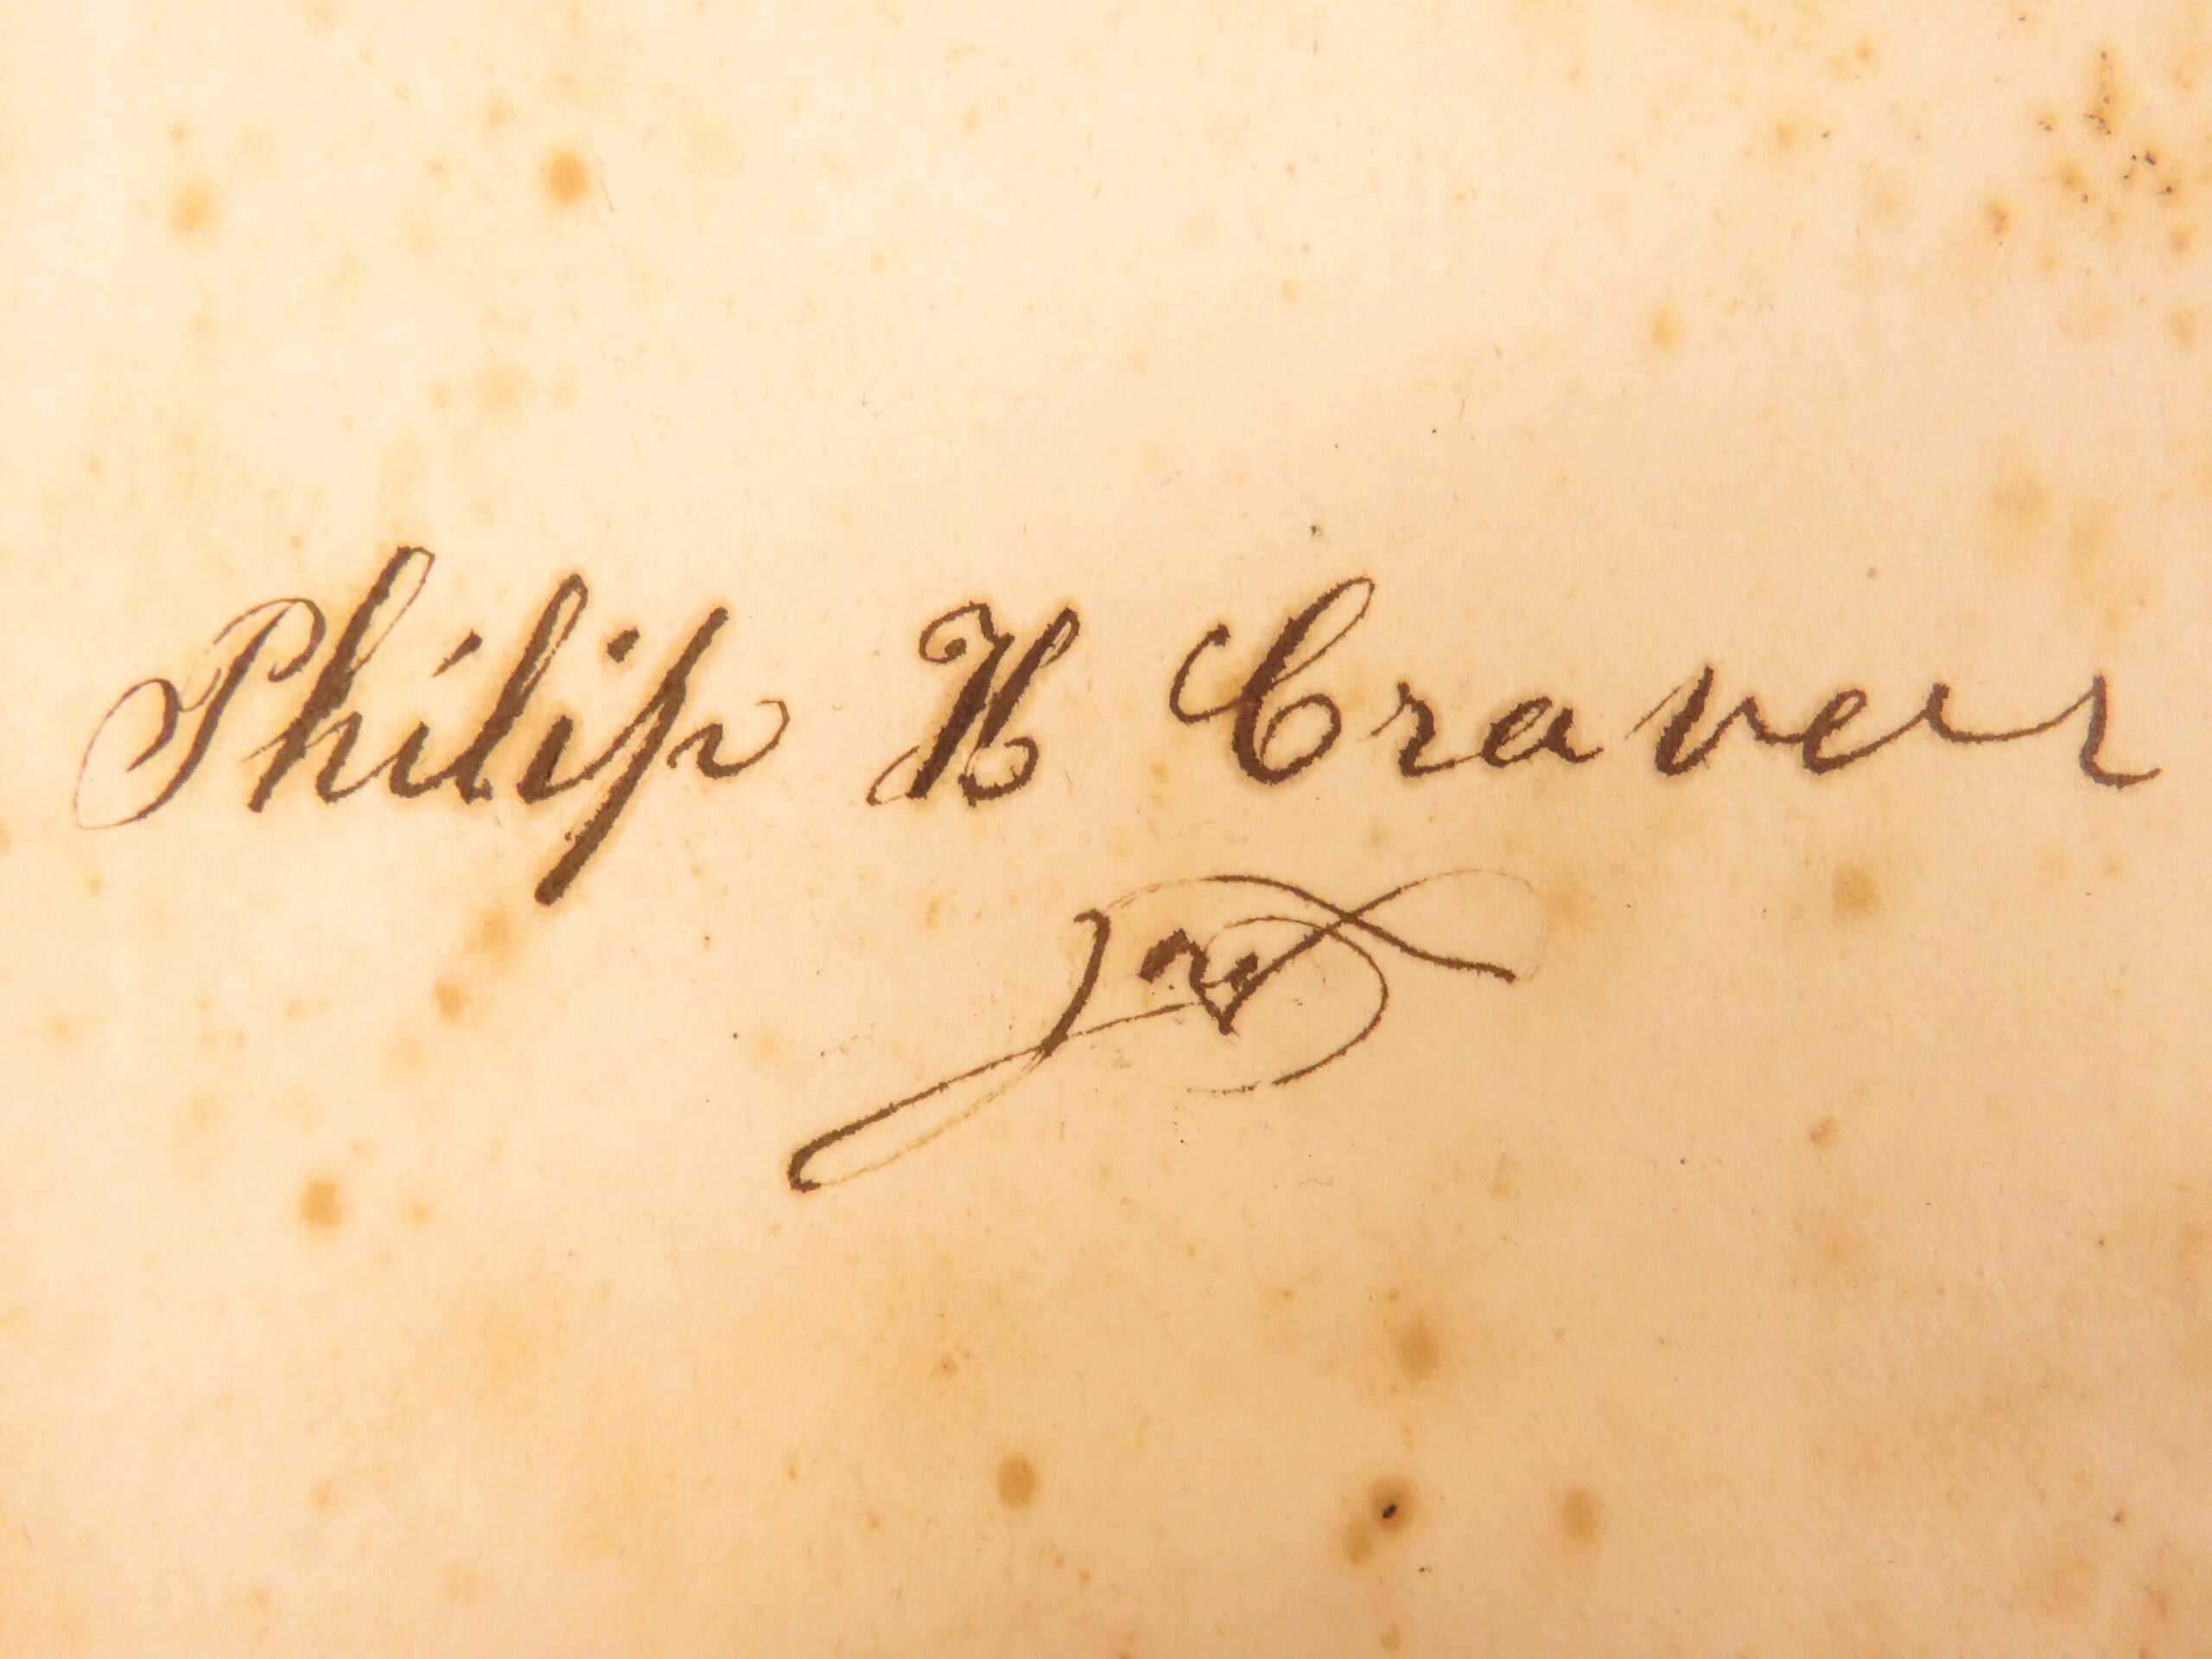 Philip H Craver